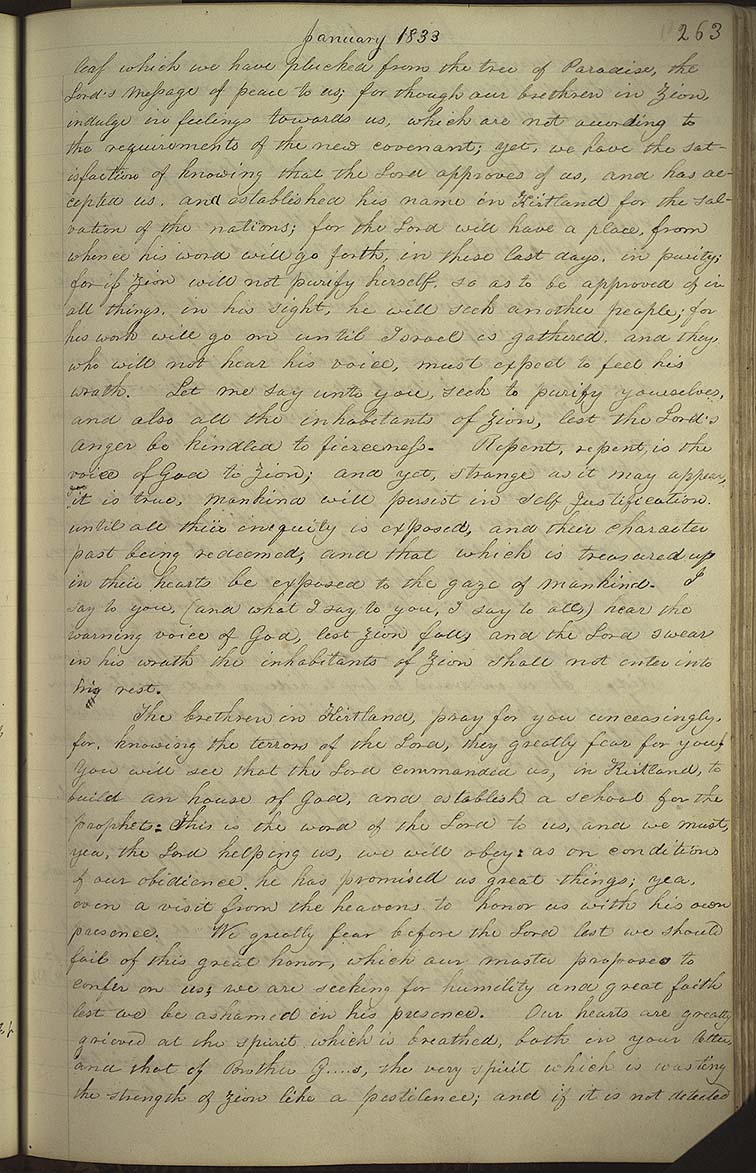 January 1833
263
leaf which we have plucked from the tree of Paradise, the
Lord's message of peace to us; for though our brethren in Zion,
indulge in feelings towards us, which are not according to
the requirements of the new covenant; yet, we have the sat-
isfaction of knowing that the Lord approves of us, and has ac-
cepted us, and established his name in Kirtland for the sal-
vation of the nations; for the Lord will have a place, from
whence his word will go forth, in these last days, in purity;
for if Zion will not purify herself, so as to be approved of in
all things, in his sight, he will seek another people; for
his work will go on until Israel is gathered, and they
who will not hear his voice, must expect to feel his
wrath. Let me say unto you, seek to purify yourselves,
and also all the inhabitants of Zion, lest the Lord's
anger be kindled to fierceness. Repent, repent, is the
voice of God to Zion; and yet, strange as it may appear,
yet it is true, mankind will persist in self Justification.
until all their iniquity is exposed, and their character
past being redeemed, and that which is treasured up
in their hearts be exposed to the gaze of mankind. I
say to you, (and what I say to you, I say to all,) hear the
warning voice of God, lest Zion fall, and the Lord swear
in his wrath the inhabitants of Zion shall not enter into
his rest.
The brethren in Kirtland, pray for you unceasingly,
for, knowing the terrors of the Lord, they greatly fear for you;
You will see that the Lord commanded us, in Kirtland, to
build an house of God, and establish a school for the
prophets: This is the word of the Lord to us, and we must,
yea, the Lord helping us, we will obey: as on conditions
of our obidience, he has promised us great things; yea,
even a visit from the heavens to honor us with his own
presence. We greatly fear before the Lord lest we should
fail of this great honor, which our master proposes to
confer on us; we are seeking for humility and great faith
lest we be ashamed in his presence. Our hearts are greatly
grieved at the spirit which is breathed, both in your letter,
and that of Brother G....s, the very spirit which is wasting
the strength of Zion like a pestilence; and if it is not detected